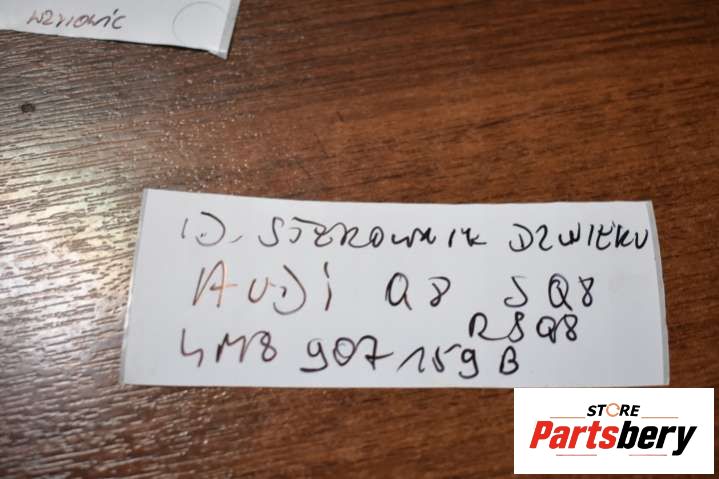 1). STEROWNIK DZWIEKU
AUDI Q8 SQ8
RSQ8
4M8 907 159 B
STORE
Partsbery